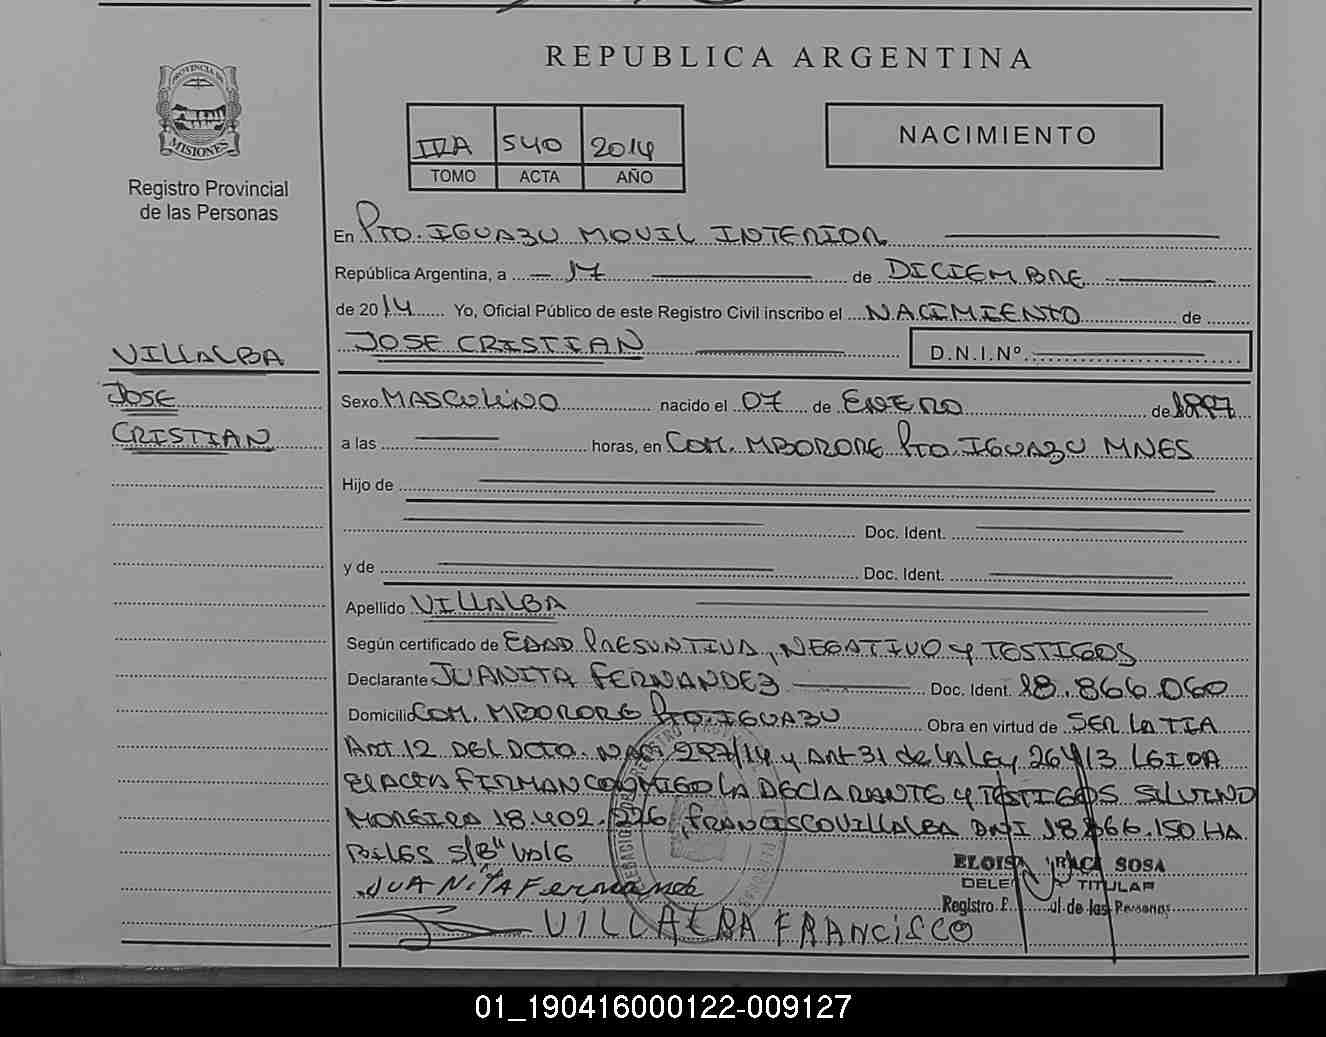 REPUBLICA ARGENTINA
PROVINCIA DE
MISIONES
Registro Provincial
de las Personas
540 2014
TOMO ACTA AÑO
NACIMIENTO
En PTO. IGUAZU MOVIL INTERIOR
República Argentina, a 17 de DICIEMBRE
de 2014 Yo, Oficial Público de este Registro Civil inscribo el NACIMIENTO de
JOSE CRISTIAN D.N.I.Nº.
VILLALBA
JOSE
CRISTIAN
Sexo MASCULINO nacido el 07 de ENERO de 1997
a las horas, en COM. MBORORE PTO. IGUAZU MNES
Hijo de
Doc. Ident.
y de Doc. Ident.
Apellido VILLALBA
Según certificado de EDAD PRESUNTIVA, NEGATIVO Y TESTIGOS
Declarante JUANITA FERNANDEZ Doc. Ident. 18.866.060
Domicilio COM. MBORORE PTO. IGUAZU Obra en virtud de SER LA TIA
Art 12 DEL DCTO. NAC. 297/14 y Art 31 de la Ley 26413 LEIDA
EL ACTA FIRMAN CONMIGO LA DECLARANTE Y TESTIGOS SILVINO
MOREIRA 18.402.226, FRANCISCO VILLALBA DNI 18.866.150 HA
BILES S/B" VALE
JUANITA Fernandez
VILLALBA FRANCISCO
ELOISA SOSA
TITULAR
Registro de las Personas
01_190416000122-009127